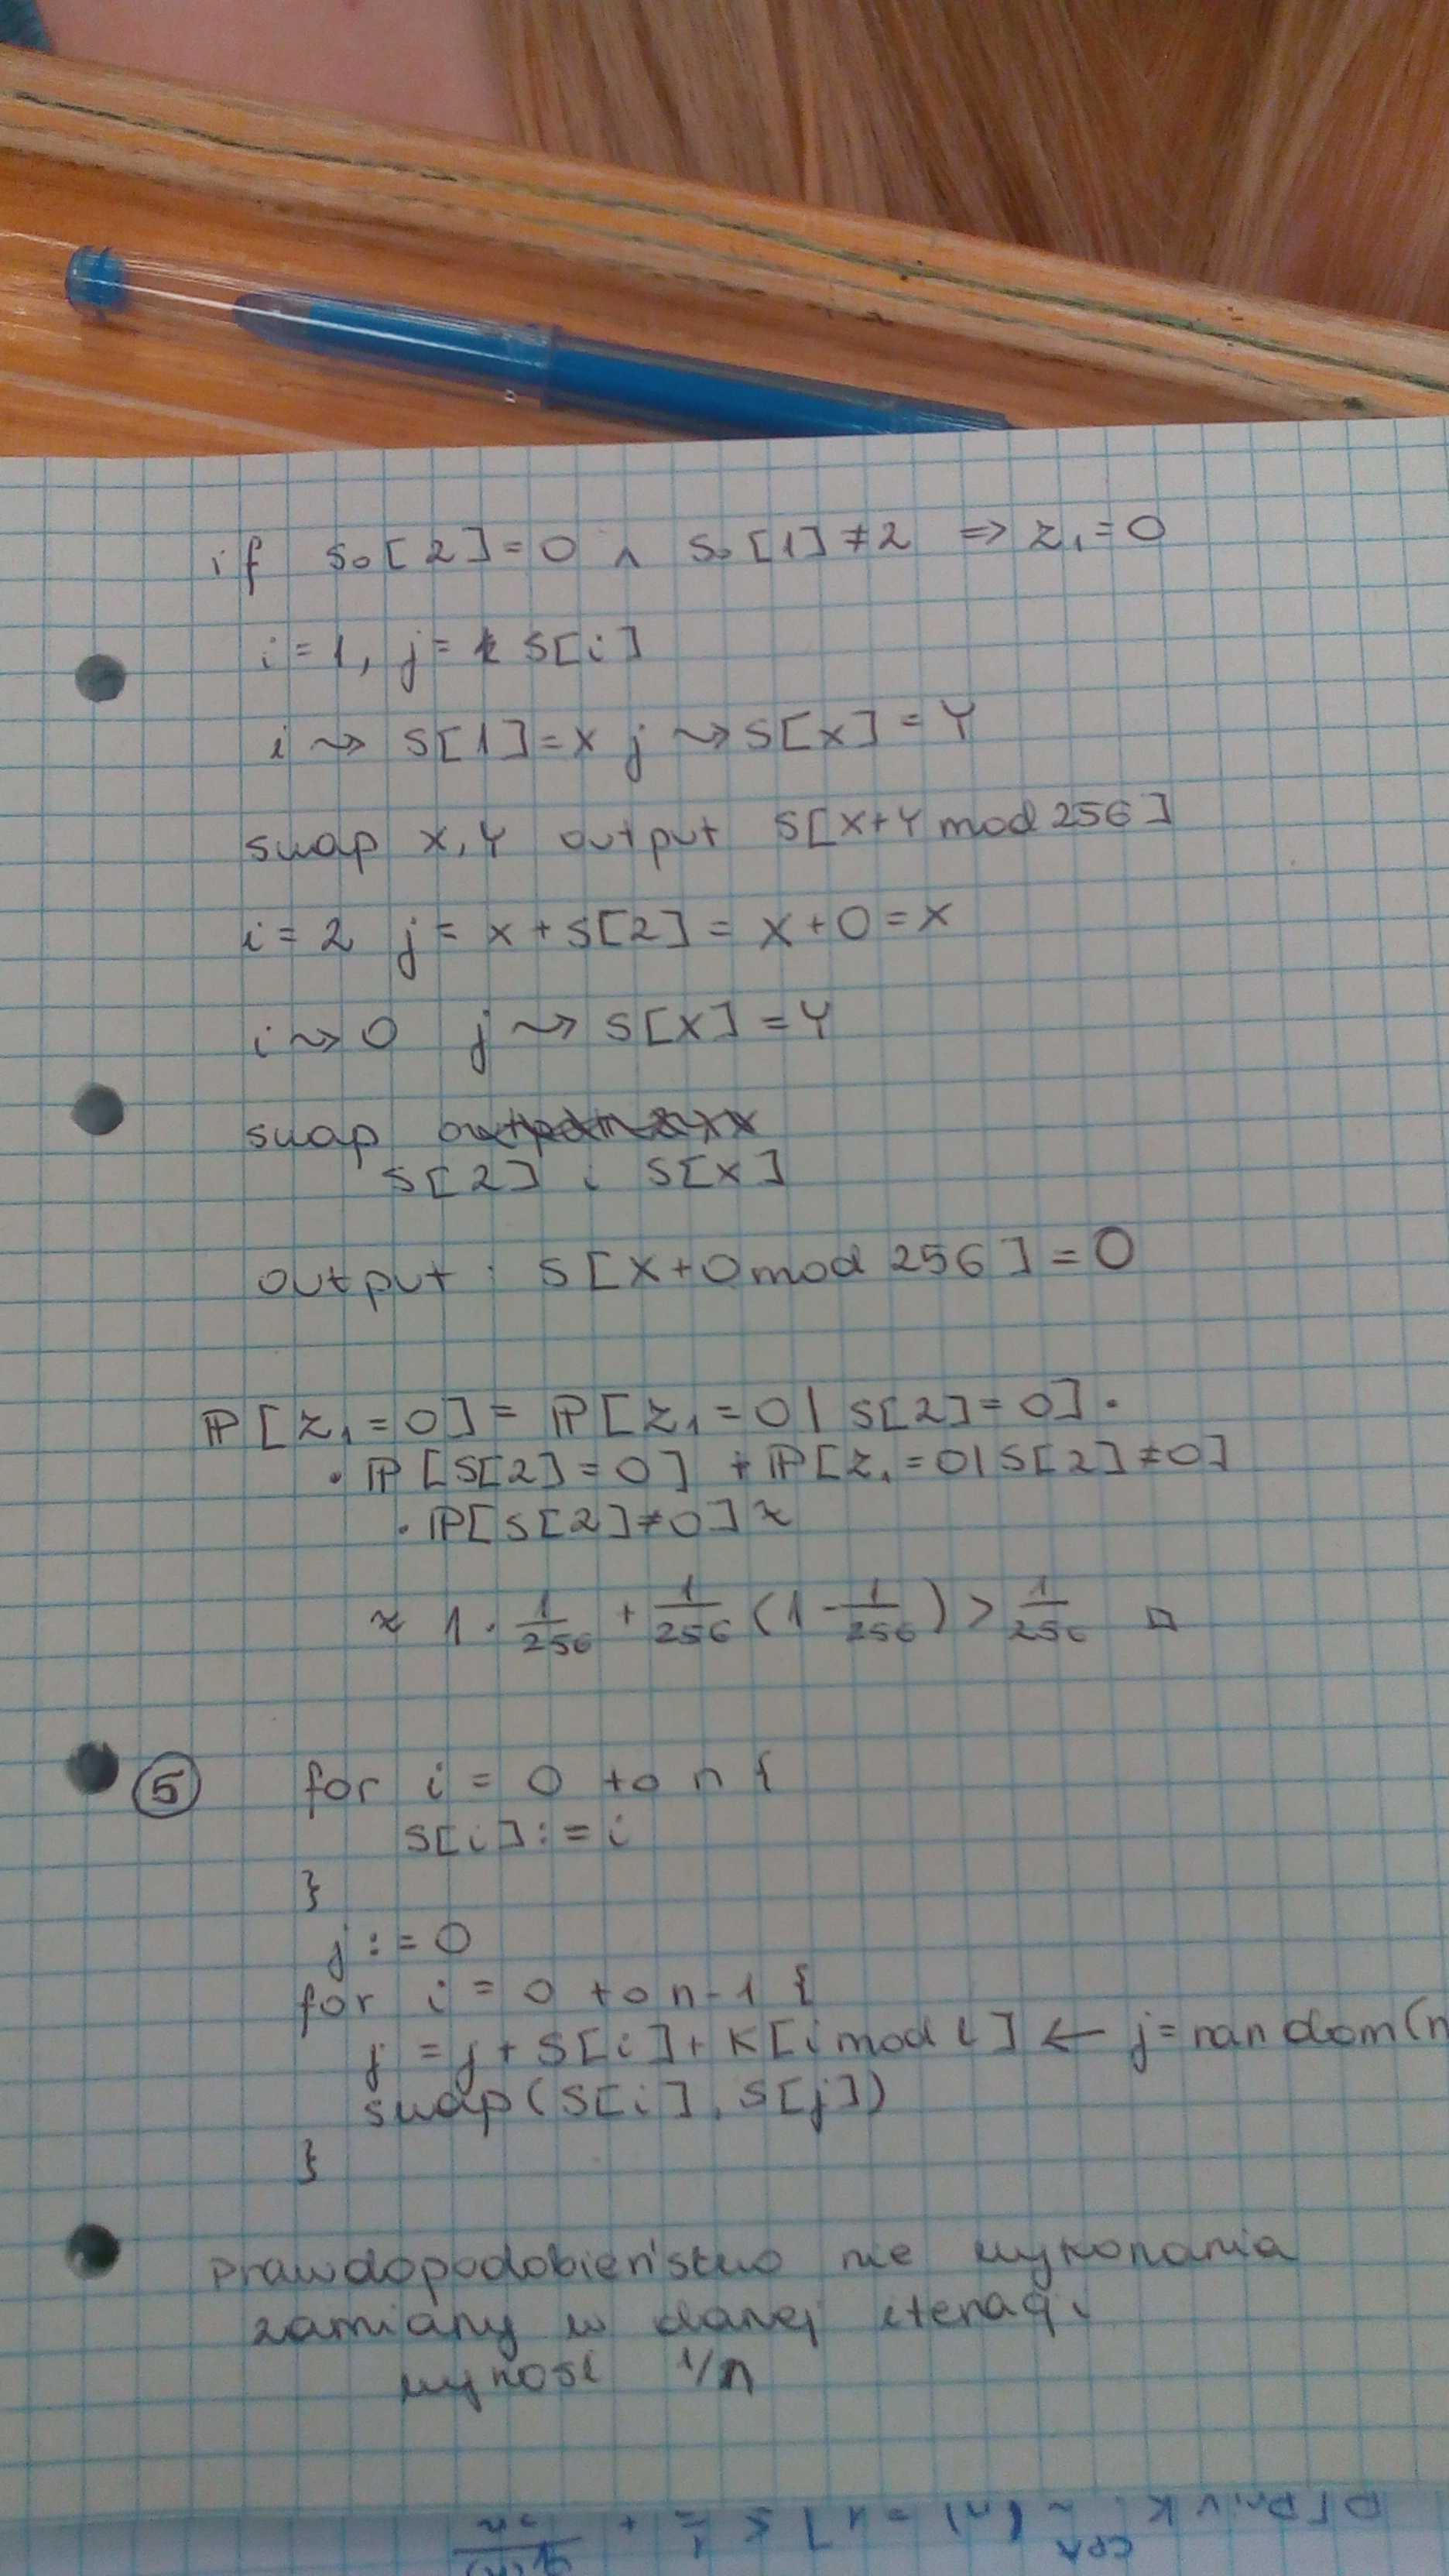 if S₀[2]=0 ∧ S₀[1]≠2 ⇒ z₁=0
i=1, j= S[i]
i ⇝ S[1]=X j ⇝ S[X]=Y
swap X,Y output S[X+Y mod 256]
i=2 j= X+S[2]= X+0=X
i ⇝ 0 j ⇝ S[X]=Y
swap
S[2] i S[X]
output: S[X+0 mod 256]=0
ℙ[z₁=0]= ℙ[z₁=0| S[2]=0]·
·ℙ[S[2]=0] + ℙ[z₁=0|S[2]≠0]
·ℙ[S[2]≠0] ≈
≈ 1·1/256 + 1/256 (1-1/256) > 1/256 □
⑤ for i = 0 to n {
S[i]:=i
}
j:=0
for i = 0 to n-1 {
j = j+S[i]+K[i mod l] ← j=random(n
swap(S[i], S[j])
}
prawdopodobieństwo nie wykonania
zamiany w danej iteracji
wynosi 1/n